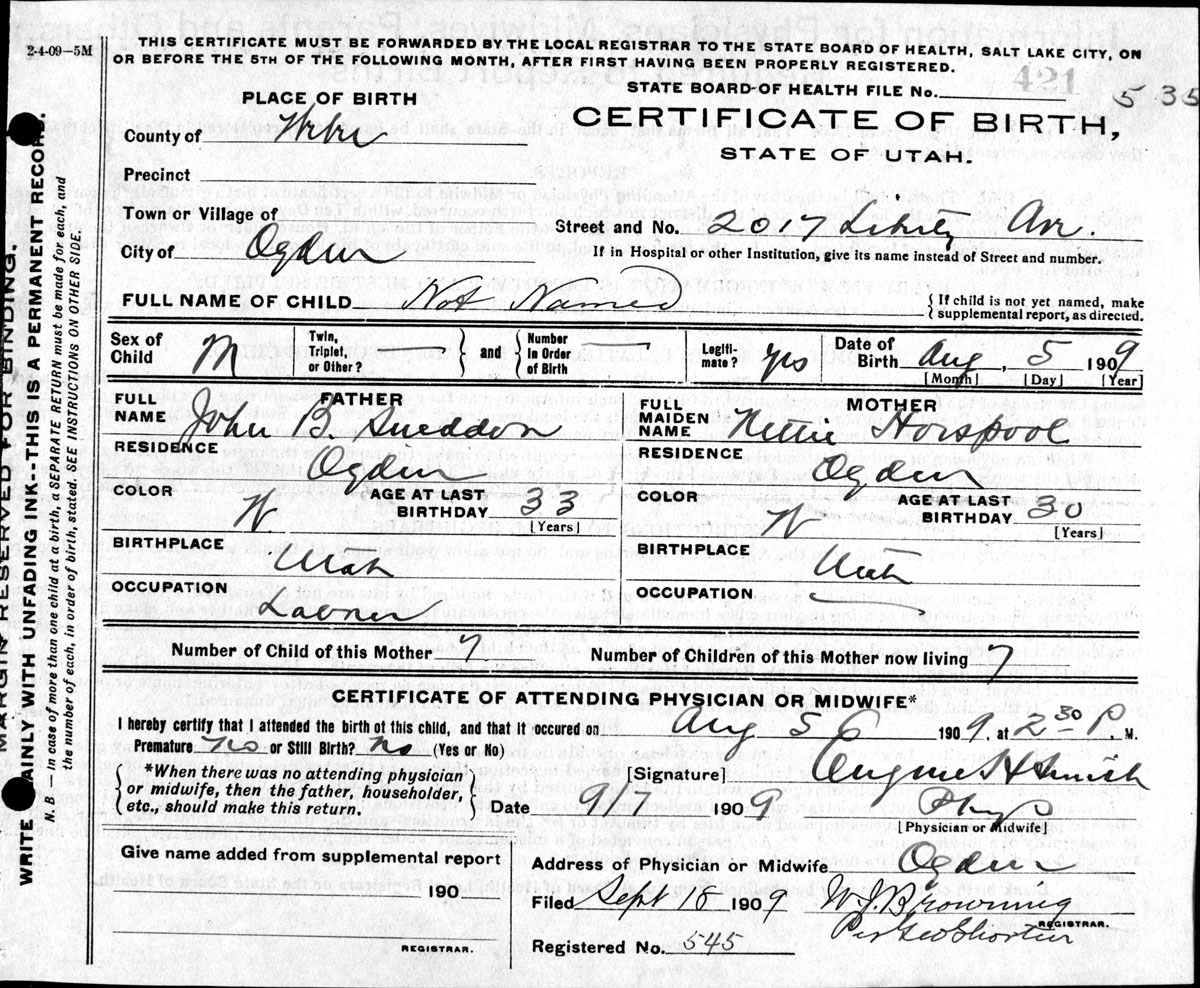 2-4-09—5M
THIS CERTIFICATE MUST BE FORWARDED BY THE LOCAL REGISTRAR TO THE STATE BOARD OF HEALTH, SALT LAKE CITY, ON
OR BEFORE THE 5TH OF THE FOLLOWING MONTH, AFTER FIRST HAVING BEEN PROPERLY REGISTERED.
421
STATE BOARD OF HEALTH FILE No. 535
PLACE OF BIRTH
CERTIFICATE OF BIRTH,
STATE OF UTAH.
County of
Precinct
Town or Village of
Street and No. 2017 Liberty Ave.
City of Ogden
If in Hospital or other Institution, give its name instead of Street and number.
FULL NAME OF CHILD Not Named
{ If child is not yet named, make
supplemental report, as directed.
Sex of Child M
Twin, Triplet, or Other? —
and
Number in Order of Birth —
Legitimate? yes
Date of Birth Aug, 5 1909
[Month] [Day] [Year]
FATHER
FULL NAME John B. Sneddon
RESIDENCE Ogden
COLOR W
AGE AT LAST BIRTHDAY 33
[Years]
BIRTHPLACE Utah
OCCUPATION Laborer
MOTHER
FULL MAIDEN NAME Nettie Horspool
RESIDENCE Ogden
COLOR W
AGE AT LAST BIRTHDAY 30
[Years]
BIRTHPLACE Utah
OCCUPATION
Number of Child of this Mother 7
Number of Children of this Mother now living 7
CERTIFICATE OF ATTENDING PHYSICIAN OR MIDWIFE*
I hereby certify that I attended the birth of this child, and that it occured on Aug 5 6 1909, at 2 30 P. M.
Premature No or Still Birth? No (Yes or No)
{ *When there was no attending physician
or midwife, then the father, householder,
etc., should make this return. }
[Signature] H Smith
Date 9/1 1909 Phys
[Physician or Midwife]
Give name added from supplemental report
190
REGISTRAR.
Address of Physician or Midwife Ogden
Filed Sept 18 1909 W. J. Browning
REGISTRAR.
Per Geo Shorten
Registered No. 545
MARGIN RESERVED FOR BINDING.
WRITE PLAINLY WITH UNFADING INK--THIS IS A PERMANENT RECORD.
N. B — In case of more than one child at a birth, a SEPARATE RETURN must be made for each, and
the number of each, in order of birth, stated. SEE INSTRUCTIONS ON OTHER SIDE.